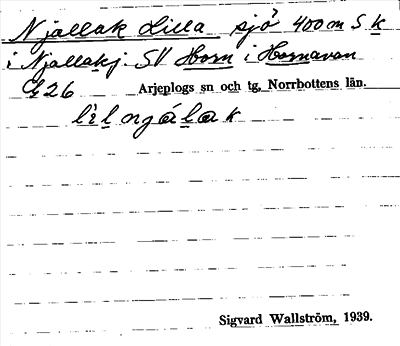 Njallak Lilla sjö 400 m S k
i Njallakj. SV Horn i Hornavan
G 26 Arjeplogs sn och tg, Norrbottens län.
Sigvard Wallström, 1939.